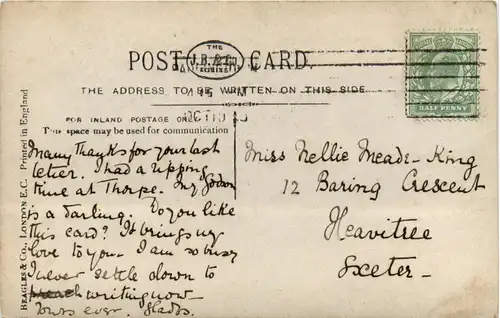 POST CARD.
THE
J.B.& Co.
THE ADDRESS TO BE WRITTEN ON THIS SIDE
FOR INLAND POSTAGE ONLY
This space may be used for communication
HALF PENNY
BEAGLES & CO., LONDON E.C. Printed in England
Many thanks for your last
letter. I had a ripping
time at Thorpe. My
is a darling. Do you like
this card? It brings my
love to you. I am so busy
I never settle down to
writing now—
Yours ever. Gladys.
Miss Nellie Meade-King
12 Baring Crescent
Heavitree
Exeter—